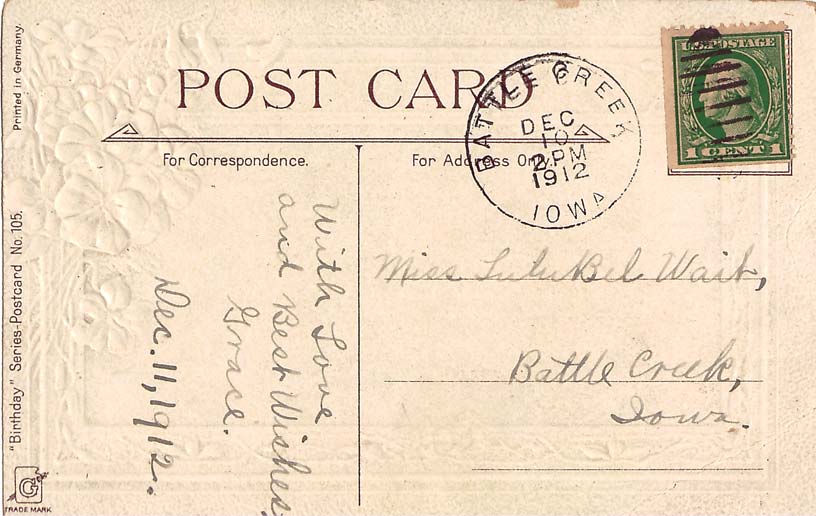 Printed in Germany.
"Birthday" Series-Postcard No. 105.
G
TRADE MARK
POST CARD
For Correspondence.
For Address Only.
BATTLE CREEK
DEC
10
2 PM
1912
IOWA
U.S. POSTAGE
1 CENT 1
With Love
and Best Wishes,
Grace.
Dec. 11, 1912.
Miss Lulu Bel Wait,
Battle Creek,
Iowa.